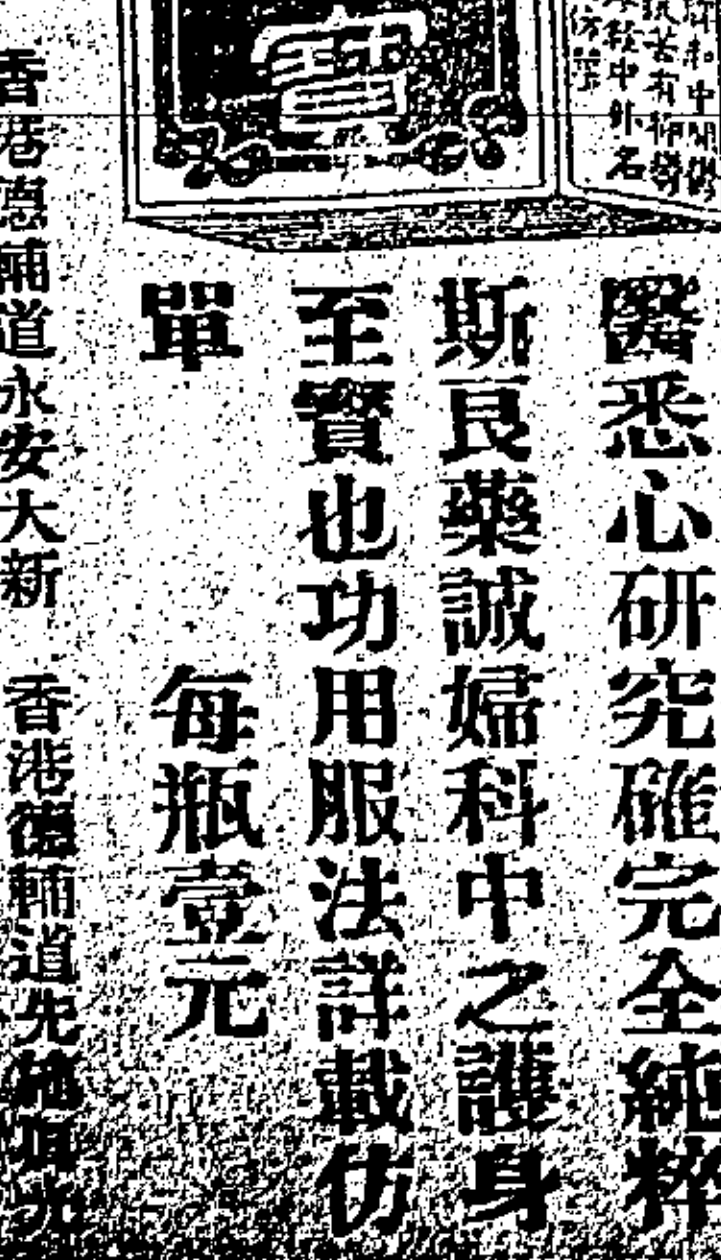 寶
經中外名
醫悉心研究確完全純粹
斯良藥誠婦科中之護身
至寳也功用服法詳載仿
單
每瓶壹元
香港德輔道永安大新
香港德輔道先施